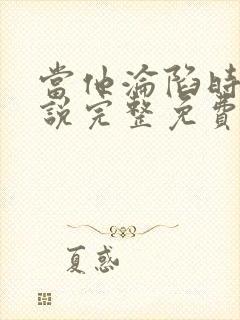 當他淪陷時
說完整免費
夏惑